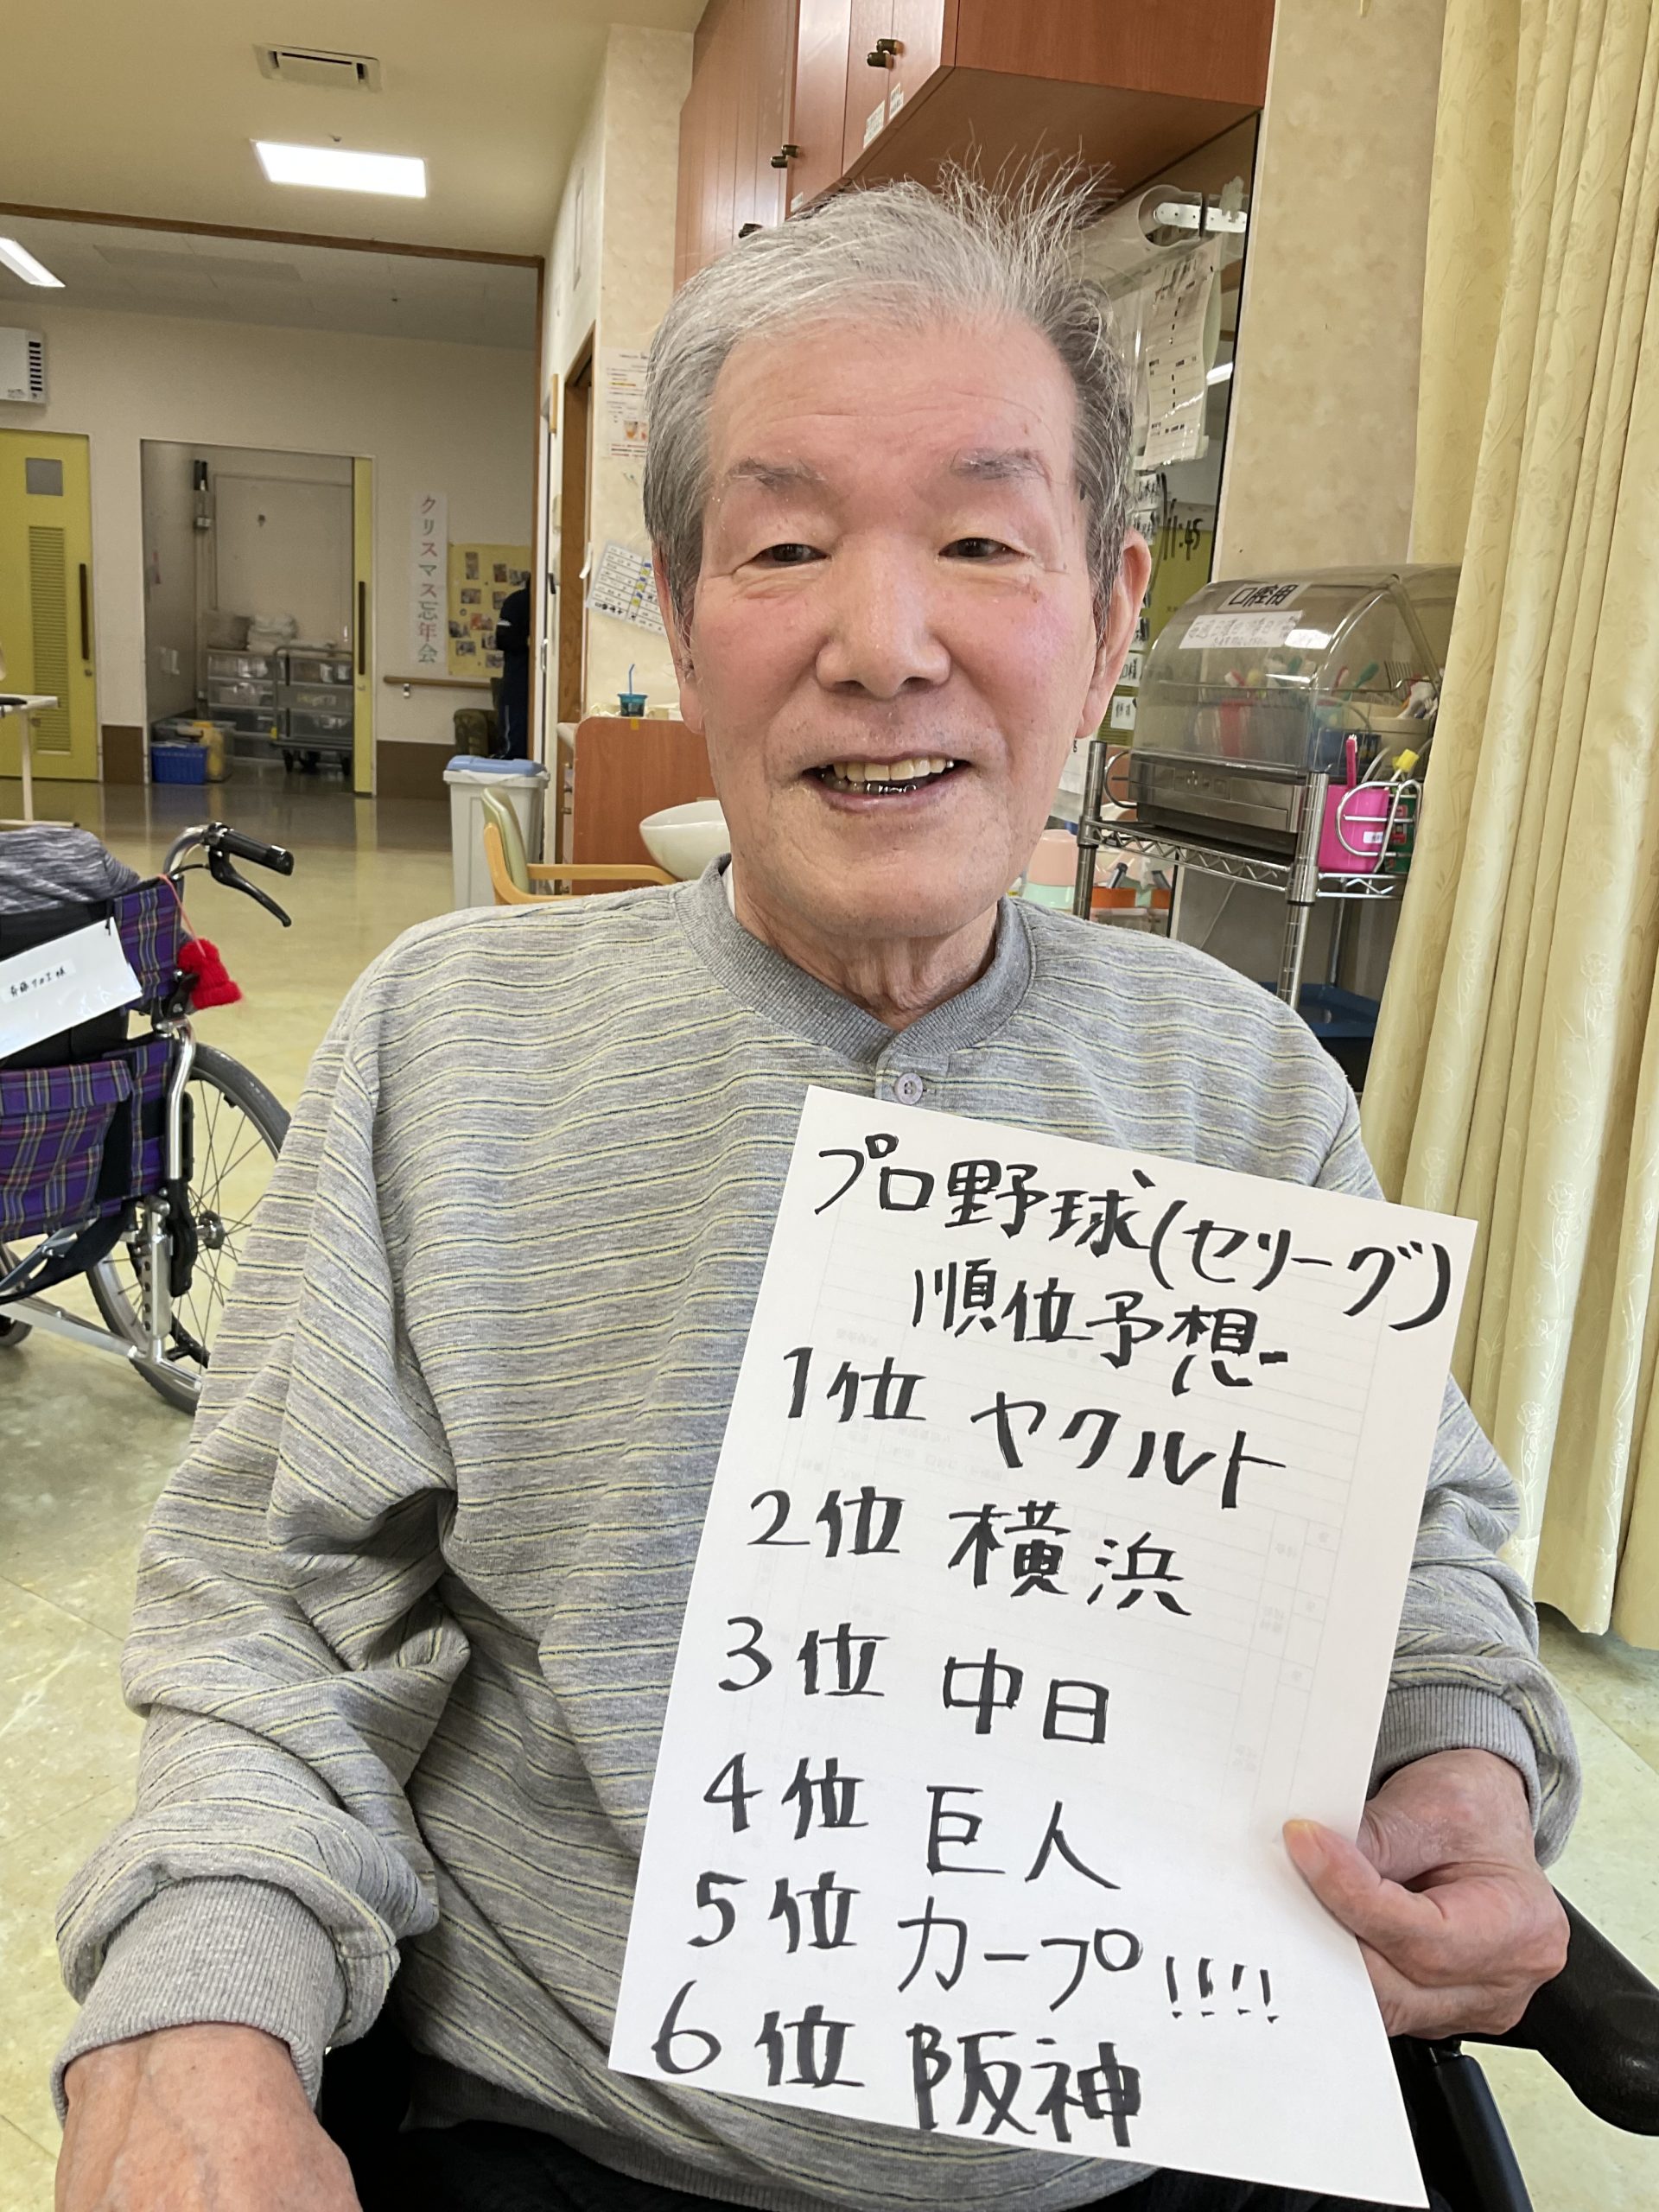 プロ野球(セリーグ)
順位予想
1位 ヤクルト
2位 横浜
3位 中日
4位 巨人
5位 カープ!!!!
6位 阪神
クリスマス忘年会
口腔用
11:45